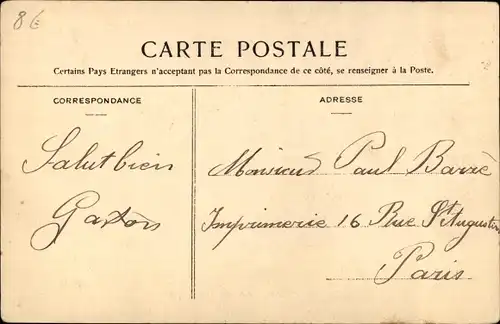 8€
CARTE POSTALE
Certains Pays Etrangers n'acceptant pas la Correspondance de ce côté, se renseigner à la Poste.
CORRESPONDANCE
Salut bien
Gaston
ADRESSE
Monsieur Paul Barré
Imprimerie 16 Rue St Augustin
Paris